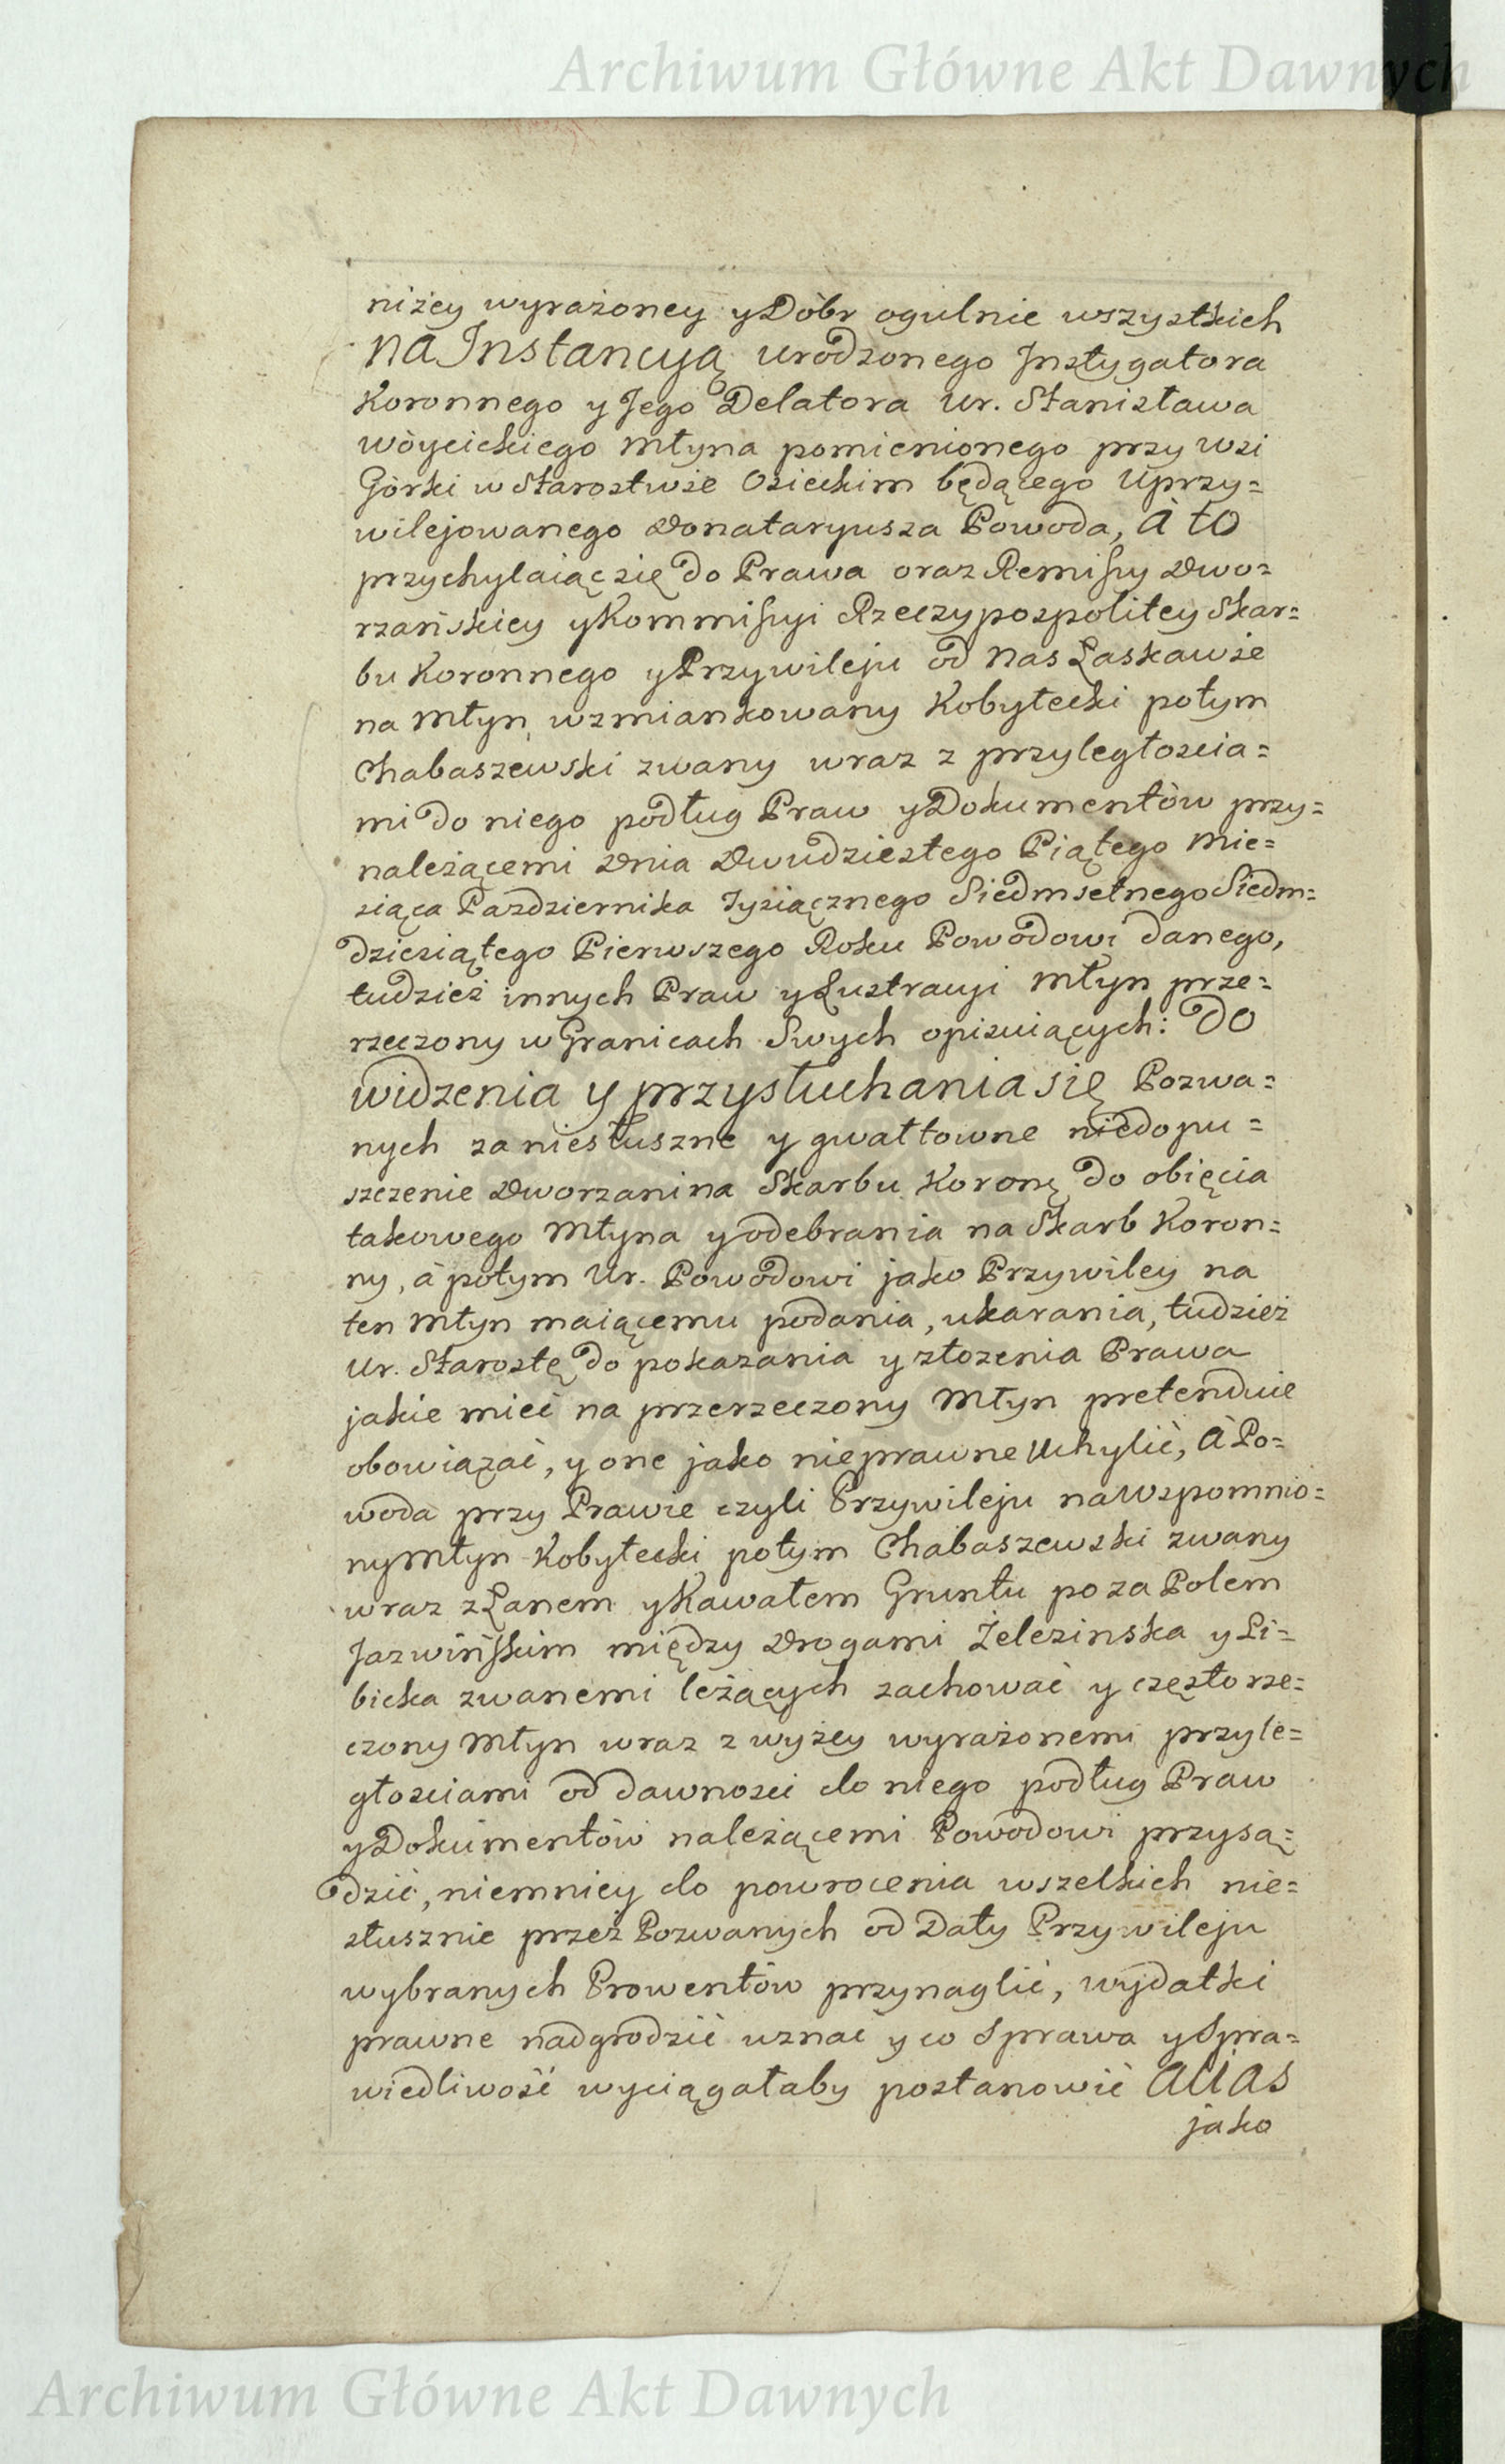 Archiwum Główne Akt Dawnych
niżey wyrażoney y Dóbr ogulnie wszystkich
na Instancyą urodzonego Instygatora
Koronnego y Jego Delatora Ur. Stanisława
Wòycickiego Młyna pomienionego przy wsi
Górki w Starostwie Osieckim będącego Uprzy=
wilejowanego Donataryusza Powoda, à to
przychylaiąc się do Prawa oraz Remissy Dwo=
rzańskiey y Kommissyi Rzeczypospolitey Skar=
bu Koronnego y Przywileju od Nas Łaskawie
na Młyn wzmiankowany Kobyłecki potym
Chabaszewski zwany wraz z przyległoscia=
mi do niego podług Praw y Dokumentów przy=
należącemi Dnia Dwudziestego Piątego Mie=
siąca Pazdziernika Tysiącznego Siedmsetnego Siedm=
dziesiątego Pierwszego Roku Powodowi danego,
tudzież innych Praw y Lustracyi Młyn prze=
rzeczony w Granicach Swych opisuiących: Do
widzenia y przysłuchania się Pozwa=
nych za niesłuszne y gwałtowne niedopu=
szczenie Dworzanina Skarbu Koronę do obięcia
takowego Młyna y odebrania na Skarb Koron=
ny, à potym Ur. Powodowi jako Przywiley na
ten Młyn maiącemu podania, ukarania, tudzież
Ur. Starostę do pokazania y złożenia Prawa
jakie mieć na przerzeczony Młyn pretenduie
obowiązać, y one jako nieprawne Uchylić, à Po=
woda przy Prawie czyli Przywileju na Wspomnio=
ny Młyn Kobyłecki potym Chabaszewski zwany
wraz z Łanem y Kawałem Gruntu poza Polem
Jazwińskim między Drogami Żelezinska y Li=
bicka zwanemi leżących zachować y często rze=
czony Młyn wraz z wyżey wyrażonemi przyle=
głosciami od dawnosci do niego podług Praw
y Dokumentów należącemi Powodowi przysą=
dzić, niemniey do powrocenia wszelkich nie=
słusznie przez Pozwanych od Daty Przywileju
wybranych Prowentów przynaglić, wydatki
prawne nadgrodzić uznać y co Sprawa y Spra=
wiedliwość wyciągałaby postanowić alias
jako
Archiwum Główne Akt Dawnych